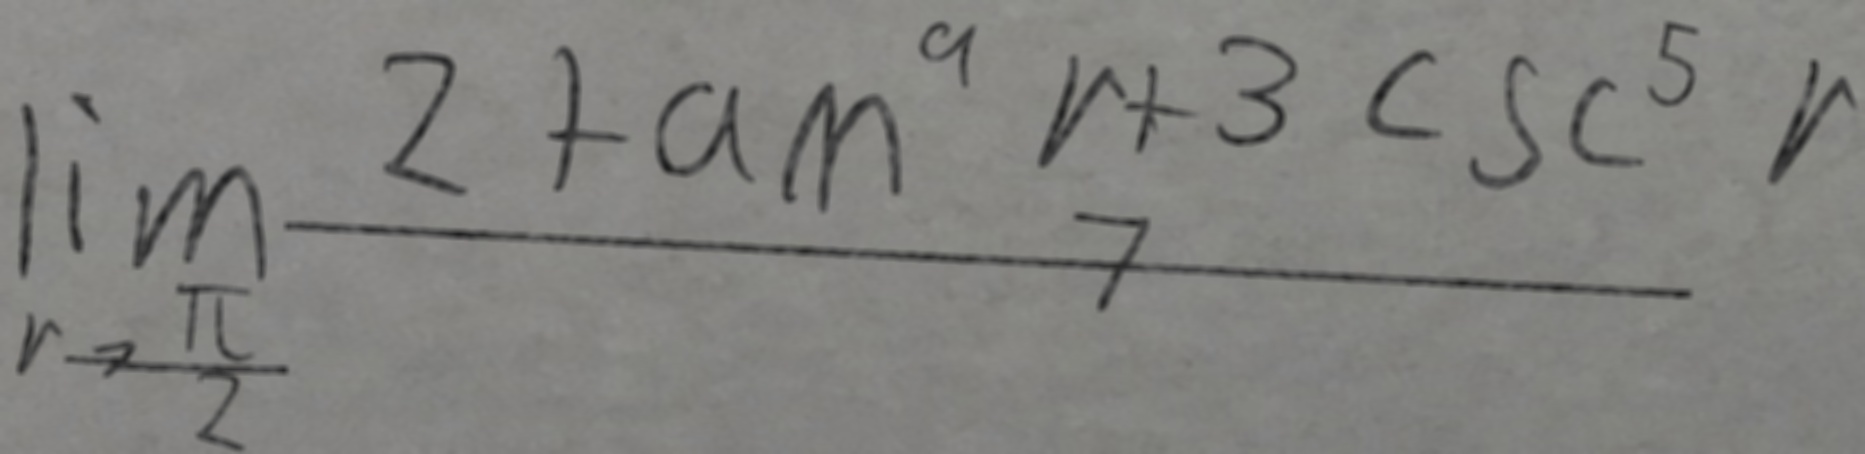 \lim_{r \to \frac{\pi}{2}} \frac{2 \tan^9 r + 3 \csc^5 r}{7}